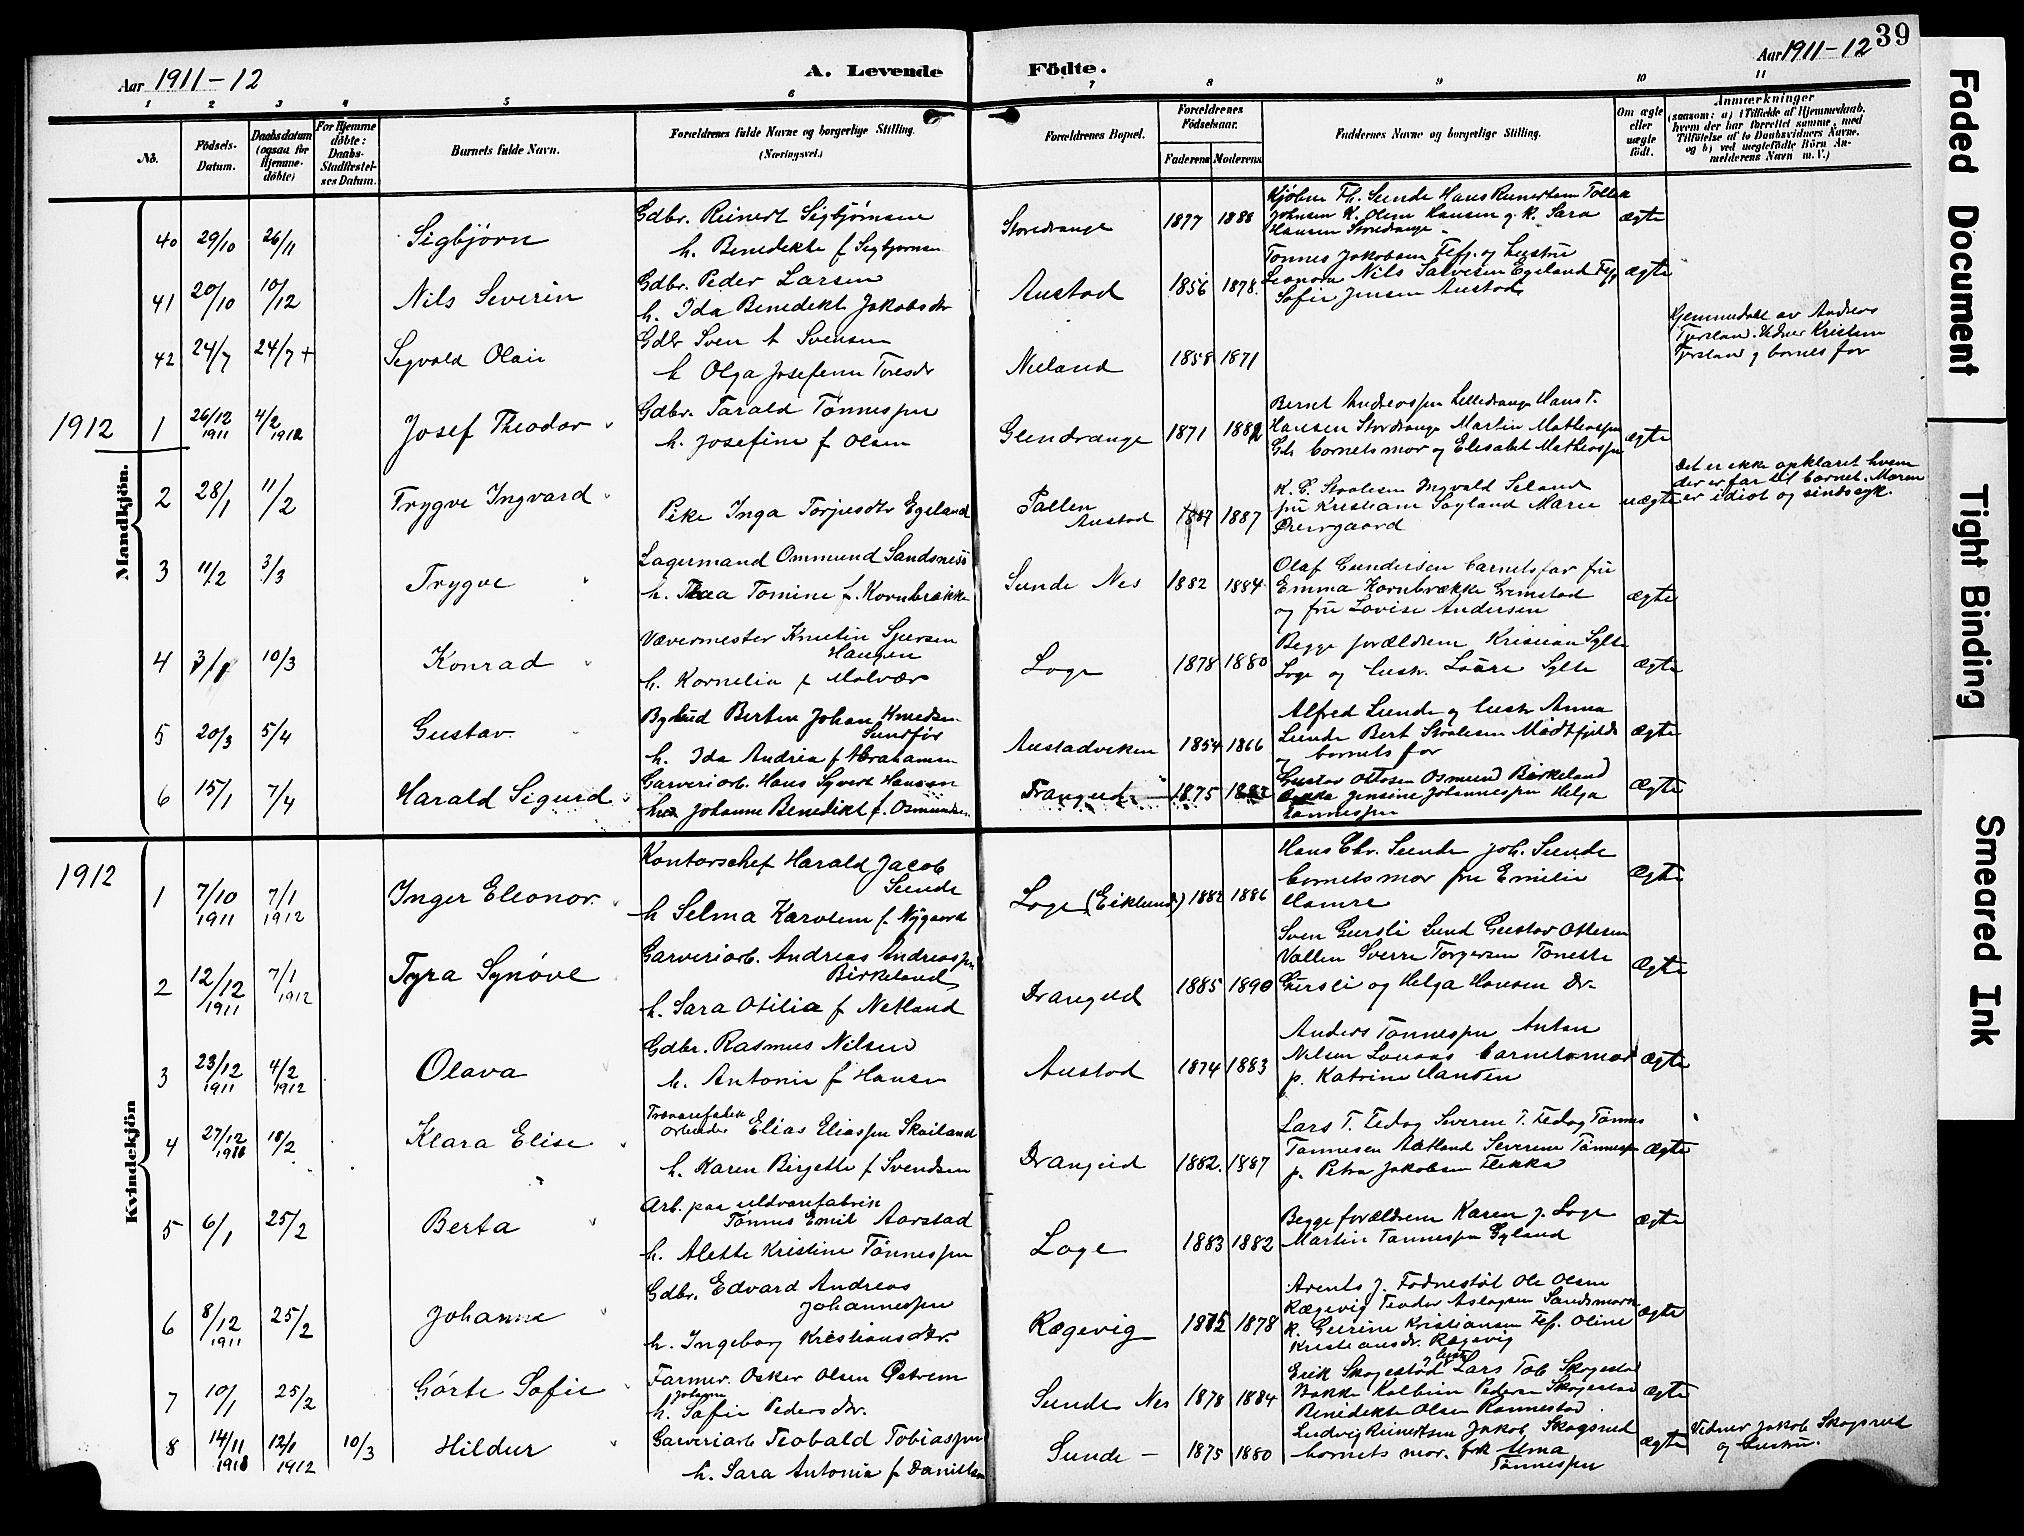 Aar 1911-12 A. Levende Födte. Aar 1911-12 39
1 2 3 4 5 6 7 8 9 10 11
No. Födsels-Datum. Daabsdatum (ogsaa for Hjemme-döbte) For Hjemme döbte: Daabs-Stadfæstel-ses Datum. Barnets fulde Navn. Forældrenes fulde Navne og borgerlige Stilling. (Næringsvei.) Forældrenes Bopæl. Forældrenes Födselsaar. Faderens Moderens Faddernes Navne og borgerlige Stilling. Om ægte eller uægte födt. Anmærkninger (saasom: a) i Tilfælde af Hjemmedaab, hvem der har forrettet samme, med Tilföielse af to Daabsvidners Navne, og b) ved uægtefödte Börn Anmelderens Navn m. V.)
Mandkjön.
40 29/10 26/11 Sigbjørn Gdbr. Reinert Sigbjørnsen
h. Benedikte f Sigbjørnsen Storedrange 1877 1888
Hans Reinertsen
Johnsen K. Olsen Hansen g. K. Sara
Hansen Storedrange ægte
41 20/10 10/12 Nils Severin Gdbr. Peder Larsen
h. Ida Benedikt Jakobsdtr Austad 1856 1878
Tønnes Jakobsen Fef. og hustru
Leonora Nils Salvesen Egeland Fef.
Sofie Jensen Austad ægte
42 24/7 24/7 + Sigvald Olai Gdbr Sven A Svensen
h Olga Josefine Toresdr Nuland 1858 1871
Hjemmedøbt av Andreas
Tjorsland Vidner Kristian
Tjorsland g barnets far
1912 1 26/12 1911 4/2 1912 Josef Theodor Gdbr. Tarald Tønnessen
h. Josefine f Olsen Glendrange 1871 1882
Bernt Andreassen Lilledrange Hans T.
Hansen Stordrange Martin Mathiassen
barnets mor og Elisabet Mathiassen ægte
2 28/1 11/2 Trygve Ingvard Pike Inga Torjusdtr Egeland Pallen
Austad 1887
K. G. Staalesen Ingvald Seland
fru Kristiane Søyland Marie
Overgaard uægte
Det er ikke opklaret hvem
der er far til barnet. Moren
er idiot og sindssyk.
3 11/2 3/3 Trygve Lagermand Ommund Sandsness
h. Thea Tomine f. Kornbrække Sunde Nes 1882 1884
Olaf Gundersen barnets far fru
Emma Kornbrække Grimstad
og fru Lovise Andersen ægte
4 10/3 Konrad Vævermester Knutin Sjursen
Haugen
h. Kornelia f Molvær Loge 1878 1880
Begge forældrene Kristian Sylte
Loge og hustr. Laura Sylte ægte
5 20/3 5/4 Gustav Bertin Johan Knudsen
Sundfør
h. Ida Andrea f Abrahamsen Austadviken 1854 1866
Alfred Sunde og hustr Anna
Sunde Bert Staalesen Midtfjeld
g barnets far ægte
6 15/1 7/4 Harald Sigurd Garveriarb. Hans Syvert Hansen
Johanne Benedikt f. Osmundsen Drangeid 1875 1883
Gustav Ottosen Osmund Birkeland
Jensine Johannessen Helga
Tønnessen ægte
Kvindekjön
1912 1 7/10 1911 7/1 1912 Inger Eleonor Kontorschef Harald Jacob
Sunde
h Selma Karoline f. Nygaard Loge (Eiklund) 1882 1886
Hans Chr. Sunde Joh. Sunde
barnets mor fru Emilie
Hamre ægte
2 12/12 1911 7/1 1912 Tyra Synøve Garveriarb. Andreas Andreassen
Birkeland
h. Sara Otilia f Netland Drangeid 1885 1890
Sven Gursli Lund Gustav Ottesen
Vallen Sverre Torgersen Tonette
Gursli og Helga Hansen Dr. Ægte
3 23/12 1911 4/2 1912 Olava Gdbr. Rasmus Nilsen
h. Antonie f Hansen Austad 1874 1883
Anders Tønnessen Anton
Nilsen Lonaas barnets mor
p. Katrine Hansen Ægte
4 27/12 18/2 Klara Elise Trævarefabrik
arbeider Elias Eliassen Skailand
h. Karen Birgette f Svendsen Drangeid 1882 1887
Lars T. Fedog Severin T. Fedog Tønnes
Tønnesen Aatland Severine Tønnessen
p. Petra Jakobsen Flikka ægte
5 6/1 25/2 Berta Arb. paa uldvarefabrik
Tønnes Emil Aarstad
h. Alette Kristine Tønnessen Loge 1883 1882
Begge forældrene Karen J. Loge
Martin Tønnessen Gyland ægte
6 8/12 1911 25/2 Johanne Gdbr. Edvard Andreas
Johannessen
h. Ingeborg Kristiansdtr. Rægevig 1875 1878
Arents J. Fodnestøl Ole Olsen
Rægevig Teodor Aslagsen Sandsmork
K. Gurine Kristiansen Fef. Oline
Kristiansdr. Rægevig ægte
7 10/1 25/2 Görte Sofie Farmer. Osker Olsen Østrem
Johanne
h. Sofie Pedersdtr. Sunde Nes 1878 1884
Erik Skogestad g hustr Lars Tob. Skogestad
Bakke Kolbein Peders Skogestad
Benedikte Olsen Rannestad ægte
8 14/11 12/1 1912 10/3 Hildur Garveriarb Teobald Tobiassen
h. Sara Antonia f Danielsen Sunde - 1875 1880
Ludvig Reinertsen Jakob Skogsrud
barnets mor. frk Alma
Tønnessen ægte
Vidner Jakob Skogsrud
og hustru.
Faded Document
Tight Binding
Smeared Ink